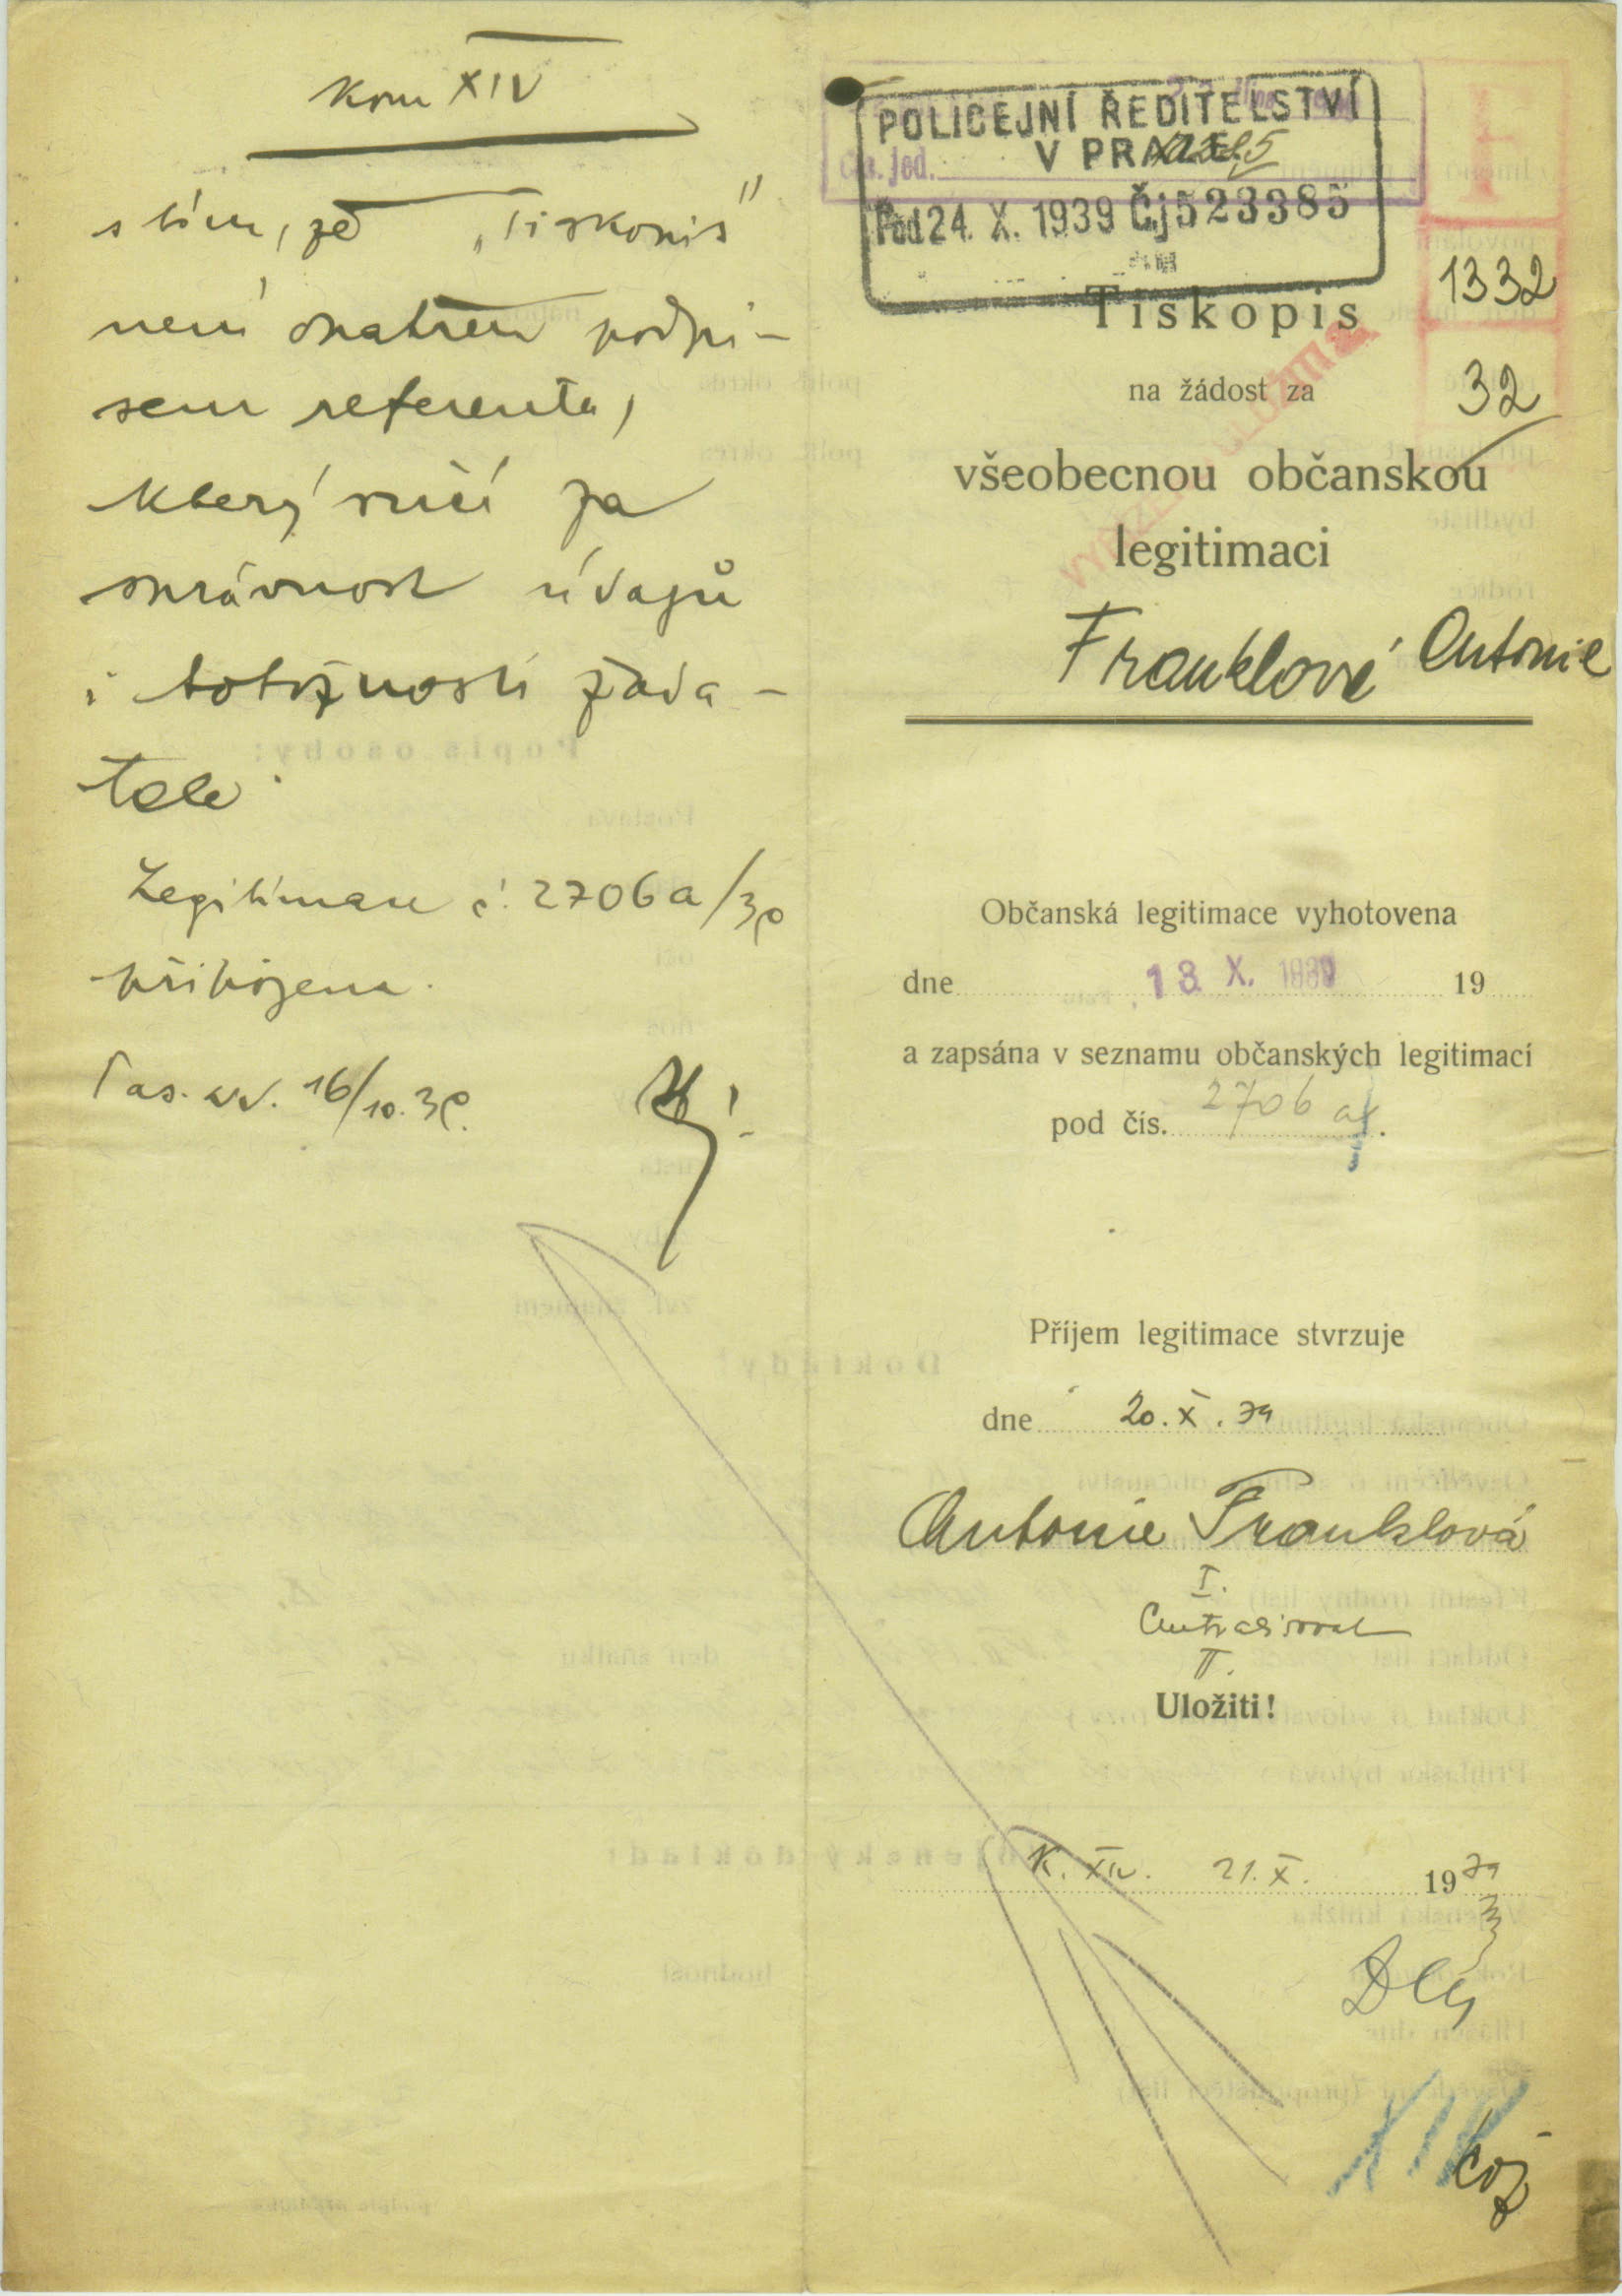 Kom XIV
s tím, že „Tiskopis"
není opatřen podpi-
sem referenta,
který ručí za
správnost údajů
i totožnosti žada-
tele.
Legitimace č. 2706a/39
přiložena.
Pas. odd. 16/10. 39.
POLICEJNÍ ŘEDITELSTVÍ
V PRAZE
Pod 24. X. 1939 Čj 523385
Čís. jed.
1332
32
Tiskopis
na žádost za
všeobecnou občanskou
legitimaci
Franklové Antonie
Občanská legitimace vyhotovena
dne 18. X. 1939 19
a zapsána v seznamu občanských legitimací
pod čís. 2706 a/.
Příjem legitimace stvrzuje
dne 20. X. 39
Antonie Franklová
I.
II.
Uložiti!
K. XIV. 21. X. 1939
XIV